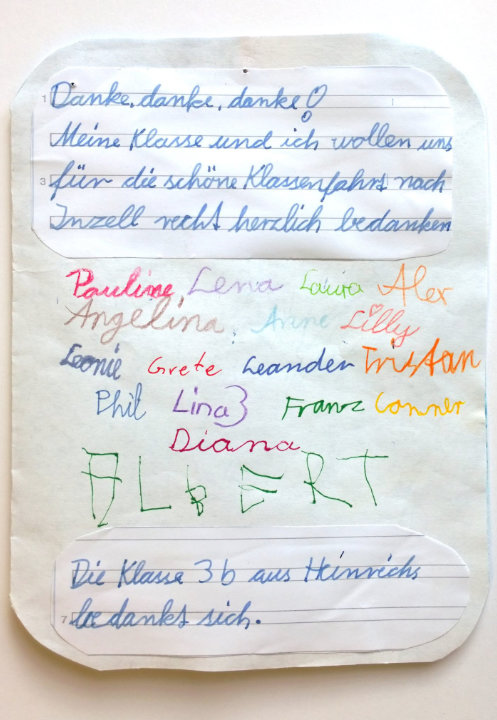 Danke, danke, danke!
Meine Klasse und ich wollen uns
für die schöne Klassenfahrt nach
Inzell recht herzlich bedanken
Pauline Lena Laura Alex
Angelina Anne Lilly
Leonie Grete Leander Tristan
Phil Lina Franz Conner
Diana
ALbERT
Die Klasse 3b aus Heinrichs
bedankt sich.